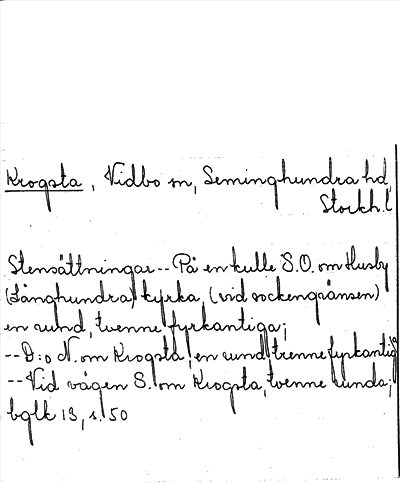 Krogsta, Vidbo sn, Seminghundra hd,
Stockh.l
Stensättningar -- På en kulle S.O. om Husby
(Långhundra) kyrka, (vid sockengränsen)
en rund, tvenne fyrkantiga;
-- D:o N. om Krogsta, en rund, trenne fyrkantig
-- Vid vägen S. om Krogsta, tvenne runda;
bglk 13, s. 50